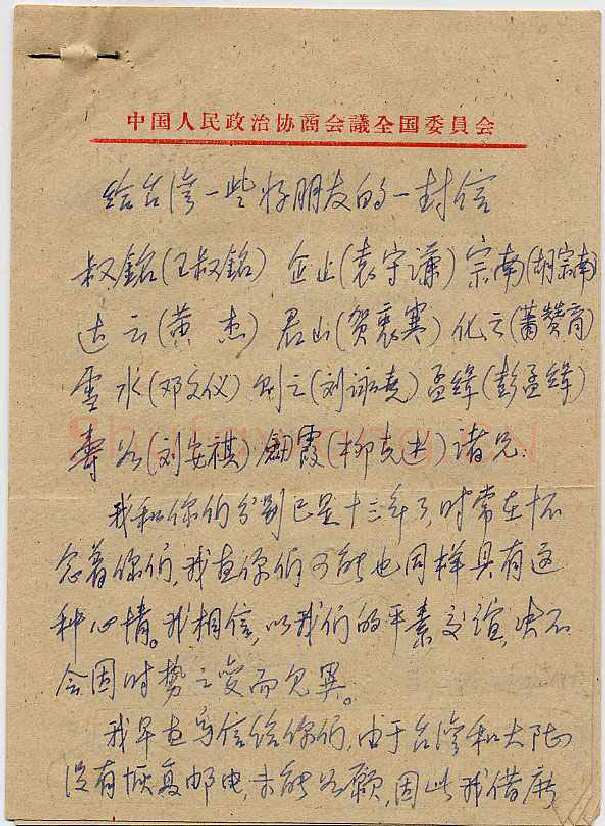 中国人民政治协商会議全国委員会
给台湾一些好朋友的一封信
叔銘(王叔銘) 企止(袁守谦) 宗南(胡宗南)
达云(黄杰) 君山(贺衷寒) 化之(萧赞育)
雪水(邓文仪) 则之(刘詠尧) 孟緝(彭孟緝)
寿如(刘安祺) 劍霞(柳克述) 诸兄:
我和你们分别已是十三年了,时常在怀
念着你们,我想你们可能也同样具有这
种心情。我相信,以我们的平素交谊,决不
会因时势之变而见異。
我早想写信给你们,由于台湾和大陆
没有恢复邮电,未能如願,因此我借